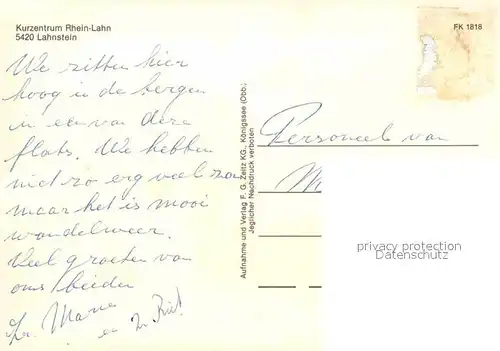 Kurzentrum Rhein-Lahn
5420 Lahnstein
FK 1818
We zitten hier
hoog in de bergen
in een van deze
flats. We hebben
niet zo erg veel zon
maar het is mooi
wandelweer.
Veel groeten van
ons beiden
Zr. Marie
en Zr.
Aufnahme und Verlag F. G. Zeitz KG, Königssee (Obb.)
Jeglicher Nachdruck verboten
Personeel van
M
privacy protection
www.ansichtskarten-center.de